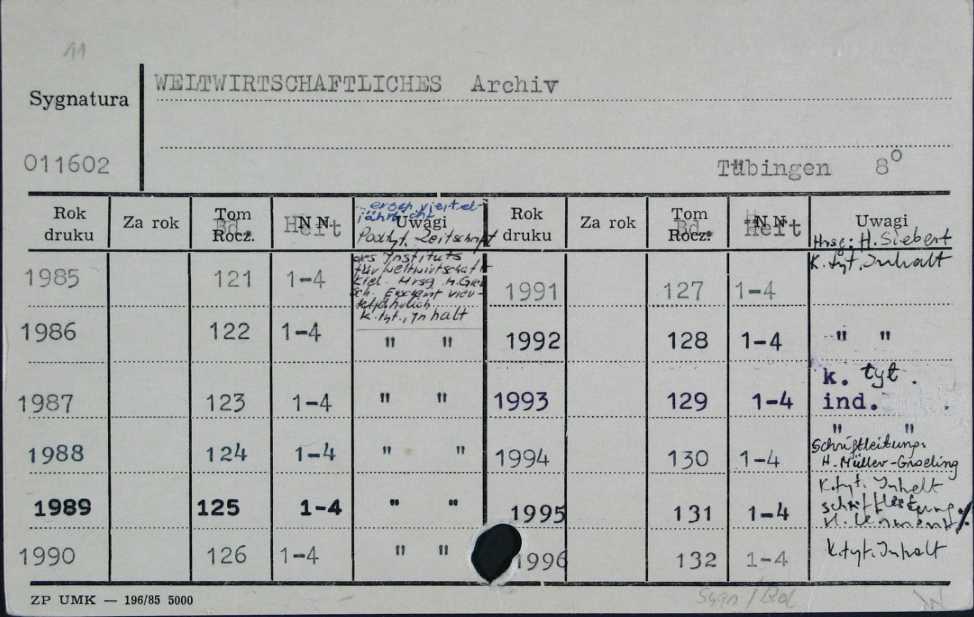 11
WELTWIRTSCHAFTLICHES Archiv
Sygnatura
011602
Tübingen 8°
Rok druku Za rok Tom Rocz. Bd. N N. Heft Uwagi Rok druku Za rok Tom Rocz. Bd. N N. Heft Uwagi
ersch. viertel-
jährlicht
Podtyt. Zeitschrift
des Instituts
für Weltwirtschaft
Kiel. Hrsg. H. Gier-
sch. Erscheint vier-
teljährlich
k. tyt., Inhalt
Hrsg: H. Siebert
K. tyt. Inhalt
1985 121 1-4 1991 127 1-4
1986 122 1-4 " " 1992 128 1-4 " "
1987 123 1-4 " " 1993 129 1-4 k. tyt.
ind.
" "
1988 124 1-4 " " 1994 130 1-4 Schriftleitung:
H. Müller-Groeling
1989 125 1-4 " " 1995 131 1-4 K. tyt. Inhalt
Schriftleitung:
1990 126 1-4 " " 1996 132 1-4 k. tyt. Inhalt
ZP UMK — 196/85 5000